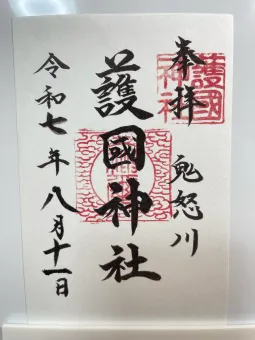 奉拝
鬼怒川
護國神社
令和七年八月十一日
護國神社